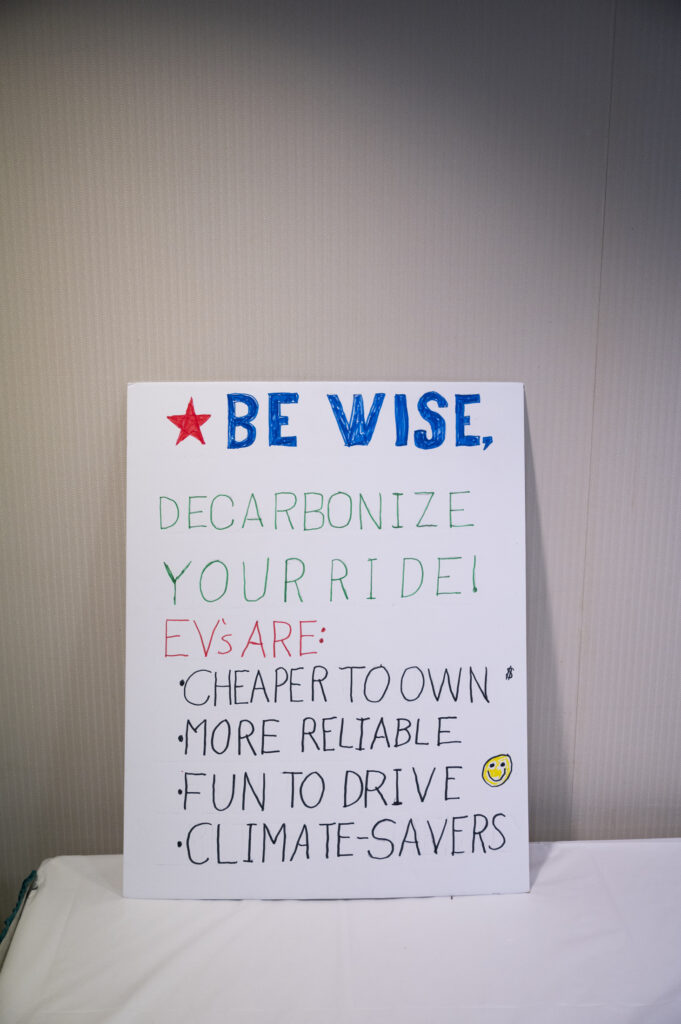 BE WISE,
DECARBONIZE
YOUR RIDE!
EV's ARE:
• CHEAPER TO OWN $
• MORE RELIABLE
• FUN TO DRIVE
• CLIMATE-SAVERS